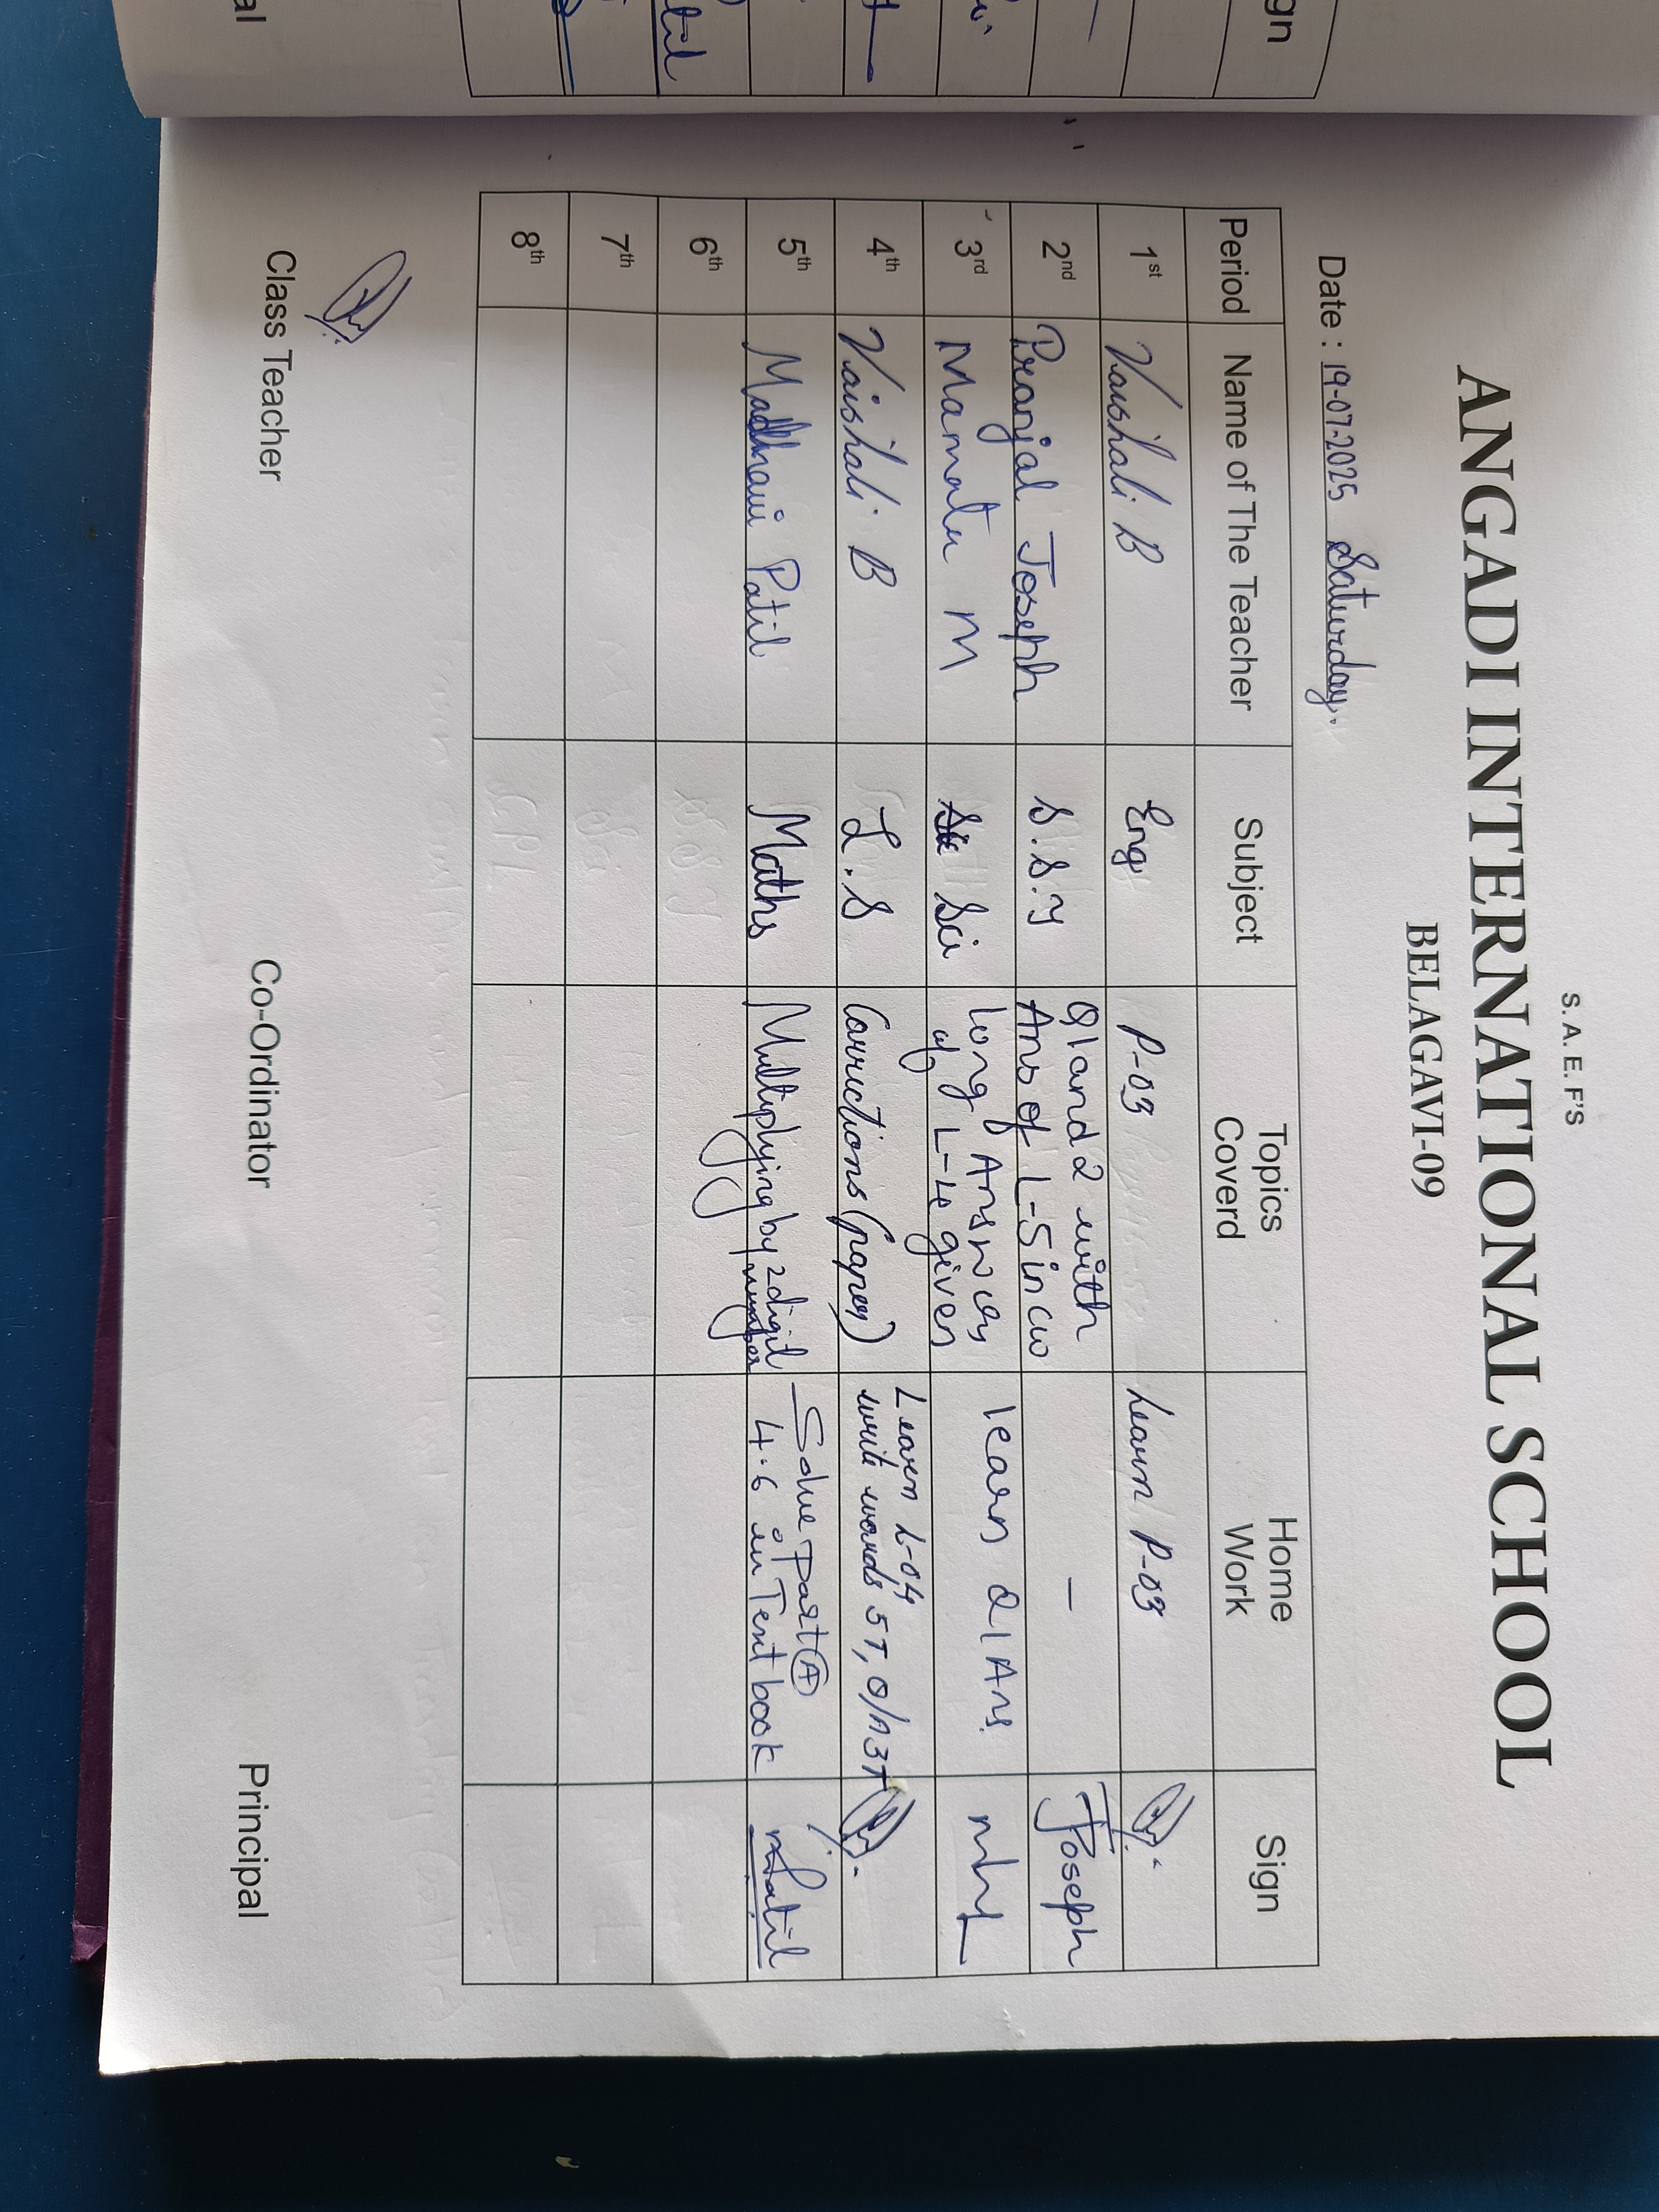 S. A. E. F'S
ANGADI INTERNATIONAL SCHOOL
BELAGAVI-09
Date : 19-07-2025 Saturday.
Period Name of The Teacher Subject Topics Coverd Home Work Sign
1st Vaishali B Eng P-03 Learn P-03
2nd Pranjal Joseph S.S.Y Q1 and 2 with Ans of L-5 in cw - Joseph
3rd Mamata M Sci long Answers of L-4 given learn Q1 Ans.
4th Vaishali B L.S Corrections (paper) Learn L-04 write words 5T, Q/A 3T
5th Madhavi Patil Maths Multiplying by 2 digit number Solve Part A 4.6 in Text book Patil
6th
7th
8th
Class Teacher Co-Ordinator Principal